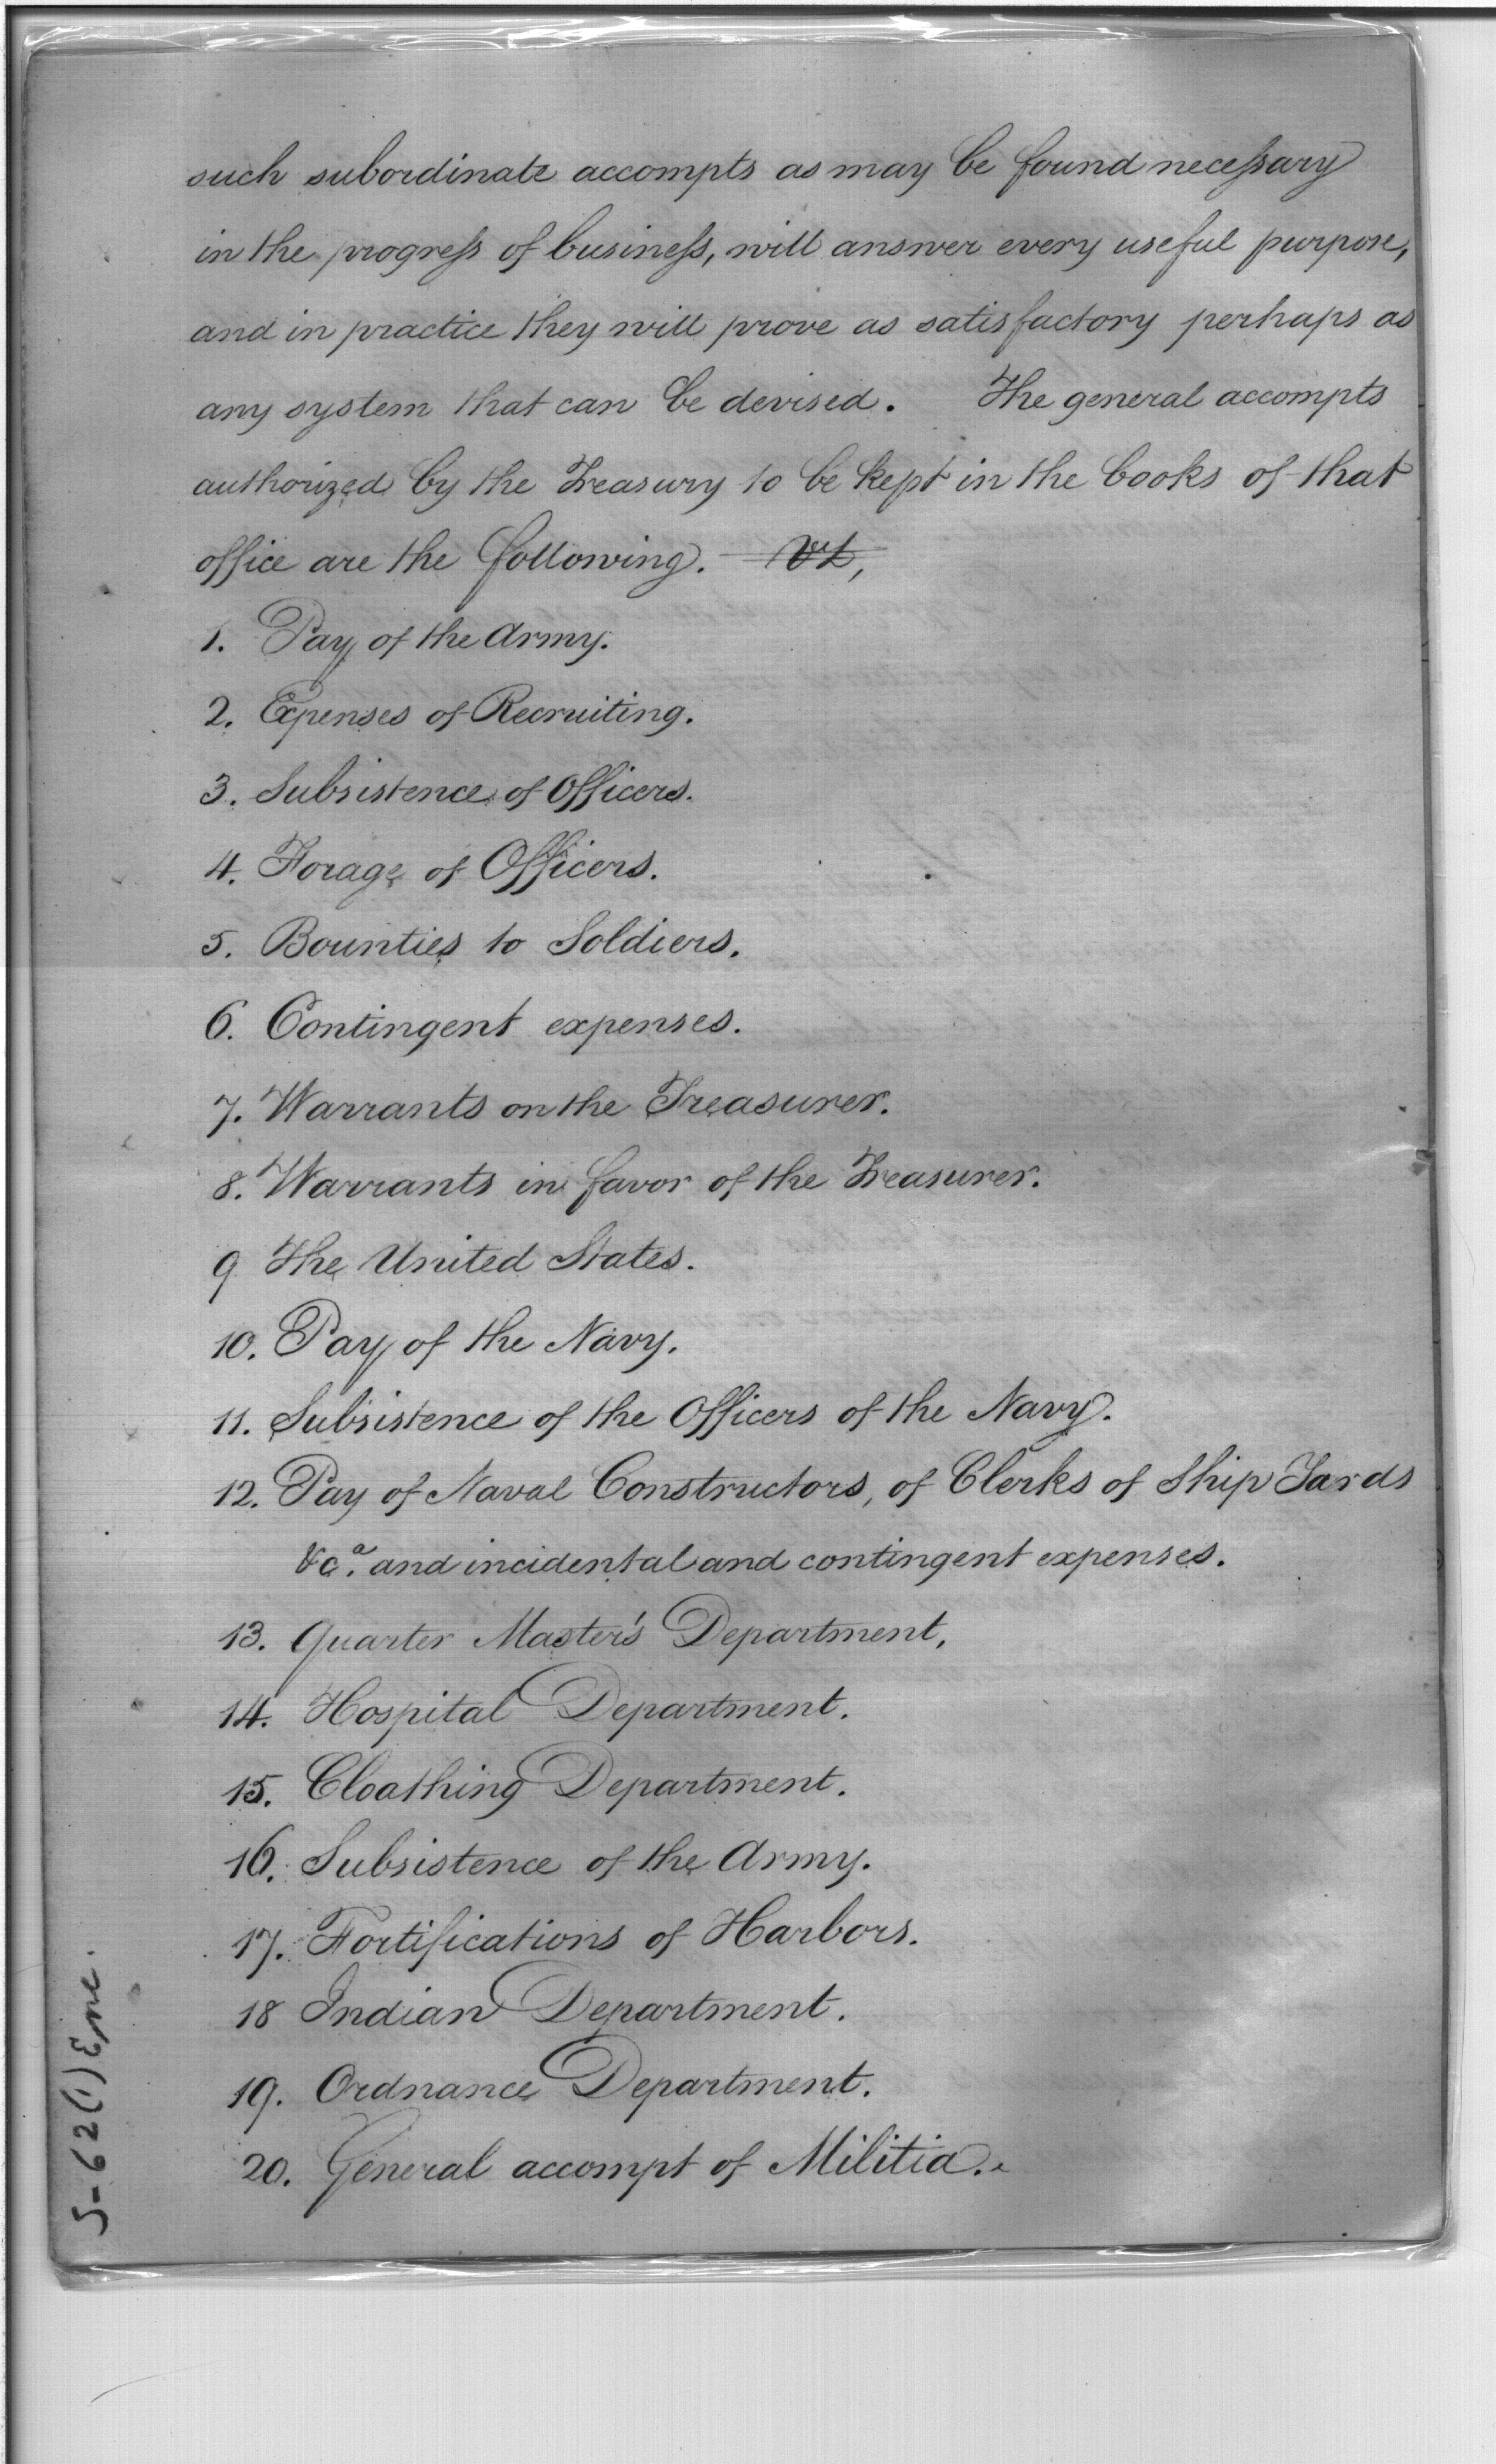 such subordinate accompts as may be found necessary
in the progress of business, will answer every useful purpose,
and in practice they will prove as satisfactory perhaps as
any system that can be devised. The general accompts
authorized by the Treasury to be kept in the books of that
office are the following.
1. Pay of the Army.
2. Expenses of Recruiting.
3. Subsistence of Officers.
4. Forage of Officers.
5. Bounties to Soldiers.
6. Contingent expenses.
7. Warrants on the Treasurer.
8. Warrants in favor of the Treasurer.
9 The United States.
10. Pay of the Navy.
11. Subsistence of the Officers of the Navy.
12. Pay of Naval Constructors, of Clerks of Ship Yards
&ca. and incidental and contingent expenses.
13. Quarter Master's Department,
14. Hospital Department.
15. Cloathing Department.
16. Subsistence of the Army.
17. Fortifications of Harbors.
18 Indian Department.
19. Ordnance Department.
20. General accompt of Militia.
S-62(1) Enc.